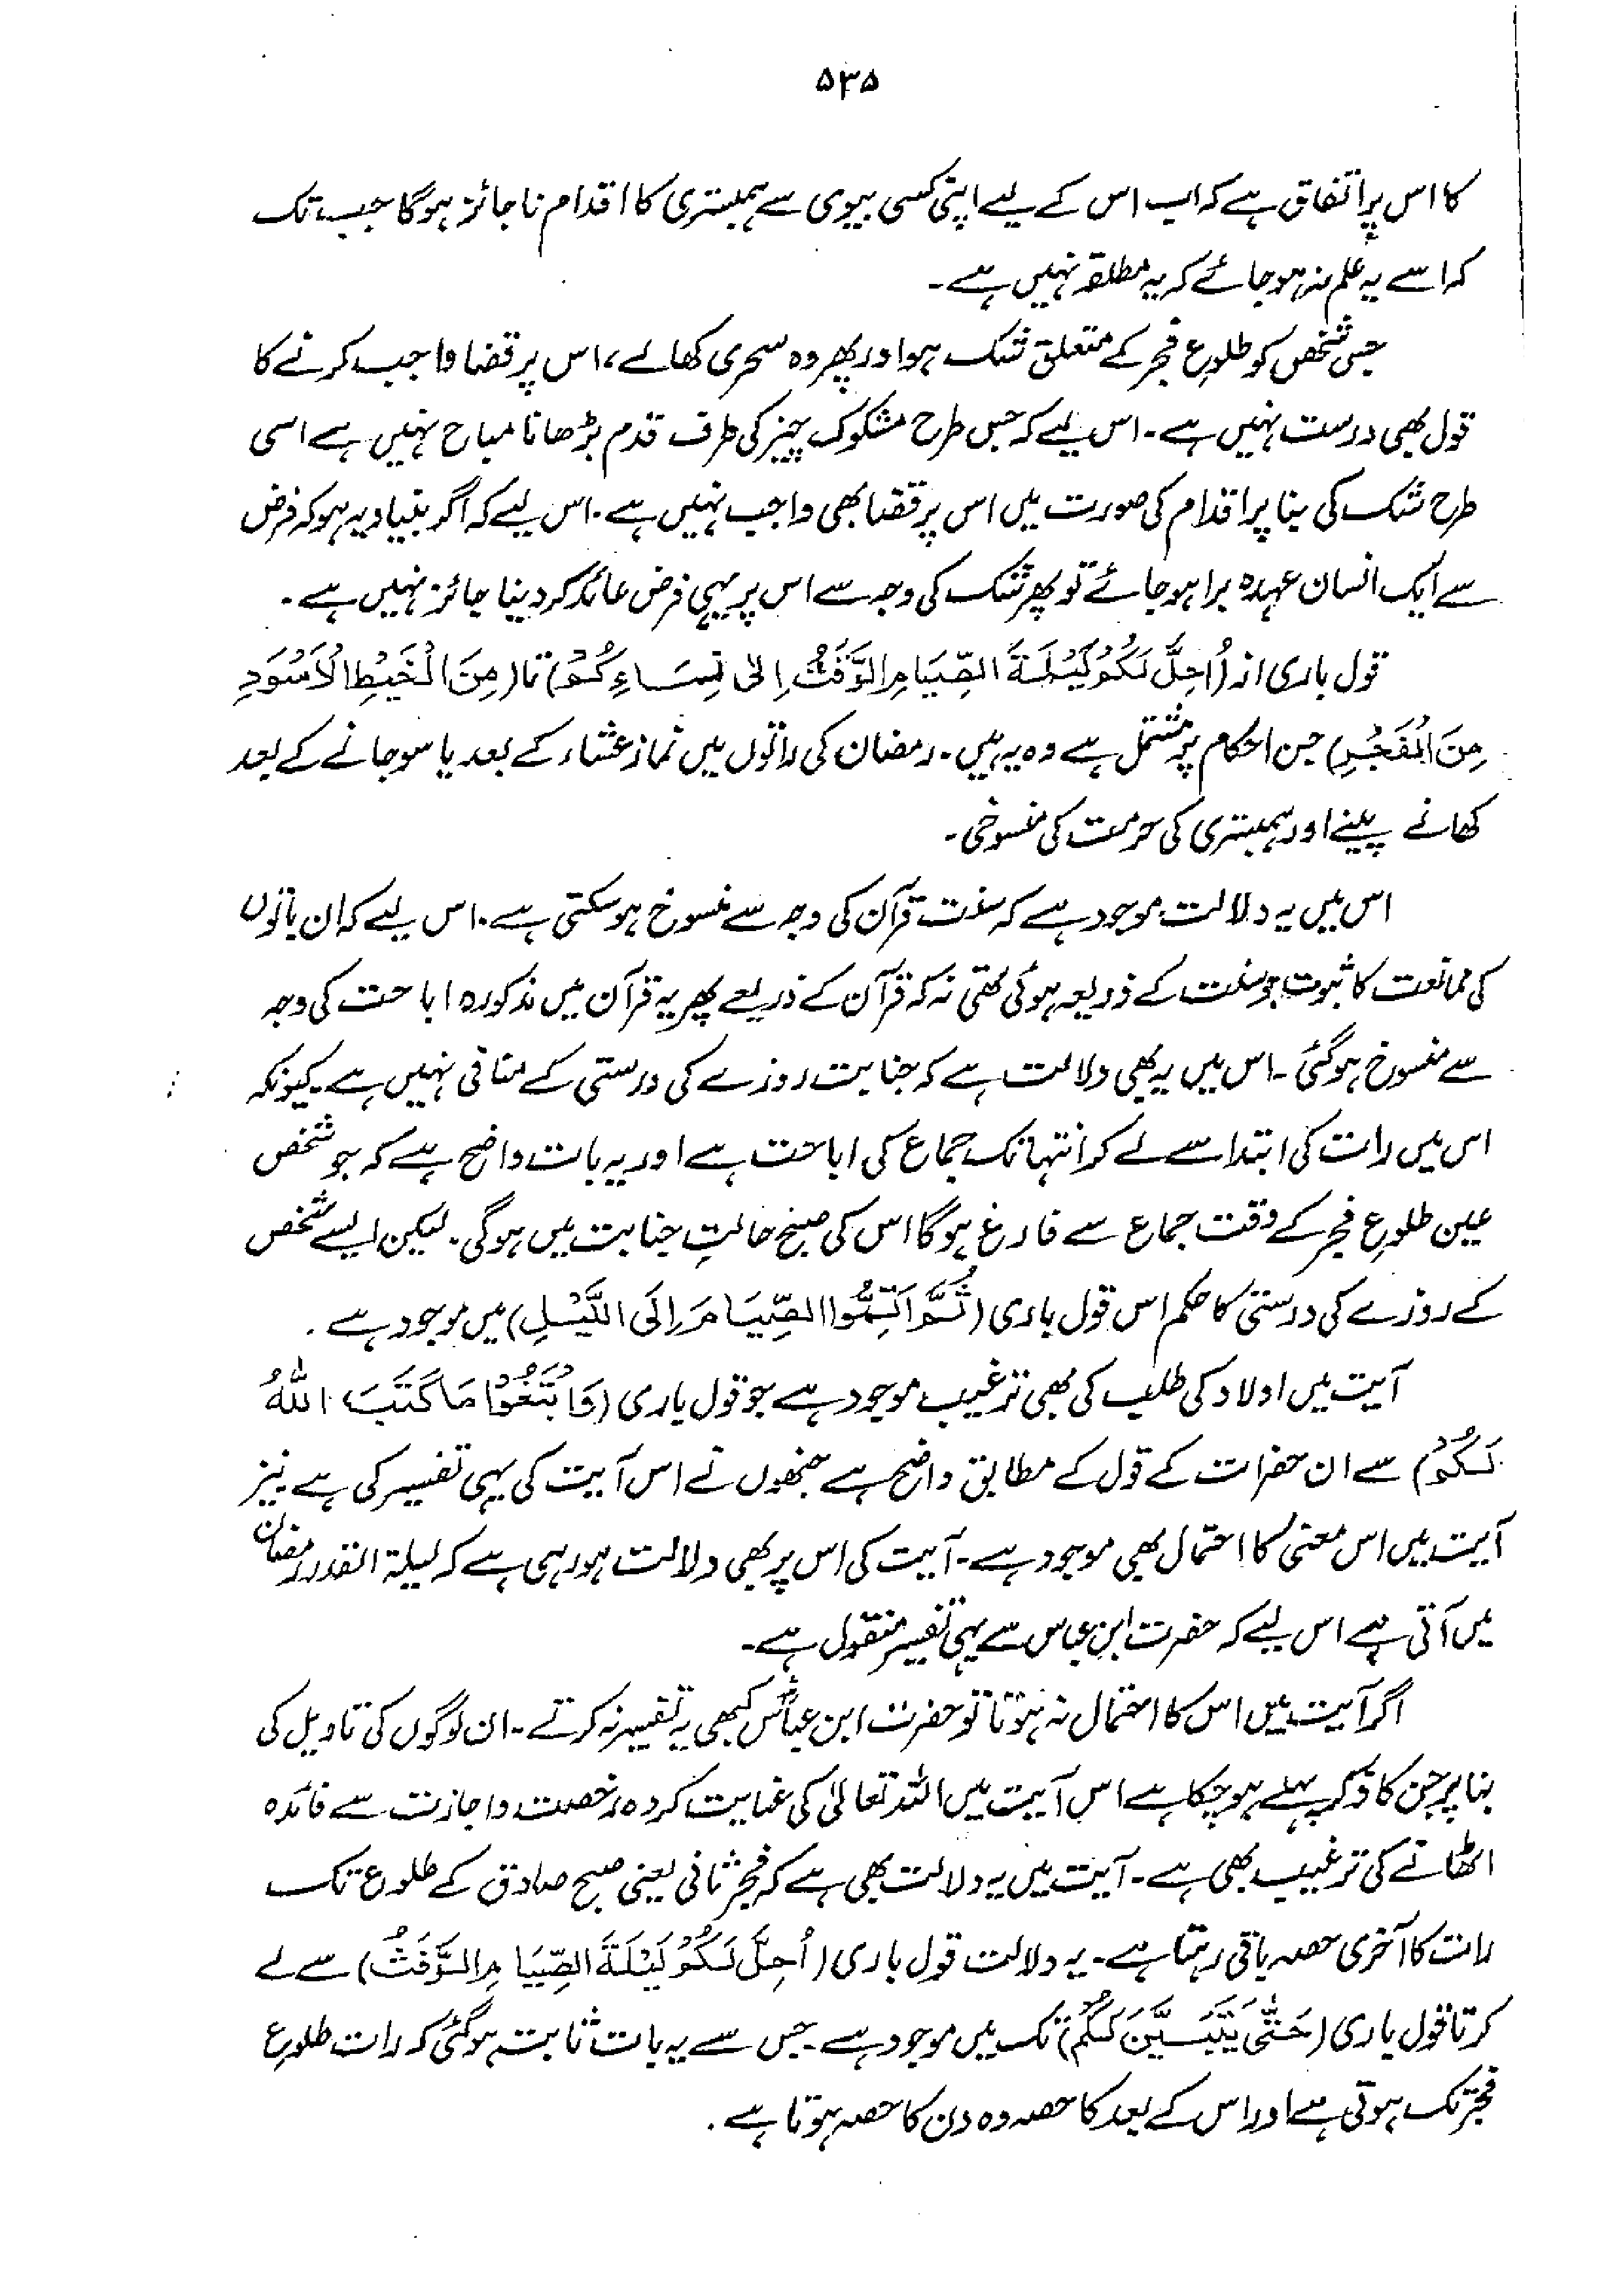 ۵۳۵
کا اس پر اتفاق ہے کہ اب اس کے لیے اپنی کسی بیوی سے ہمبستری کا اقدام ناجائز ہوگا جب تک
کہ اسے یہ علم نہ ہو جائے کہ یہ مطلقہ نہیں ہے۔
جس شخص کو طلوع فجر کے متعلق شک ہو اور پھر وہ سحری کھا لے، اس پر قضا واجب کرنے کا
قول بھی درست نہیں ہے۔ اس لیے کہ جس طرح مشکوک چیز کی طرف قدم بڑھانا مباح نہیں ہے اسی
طرح شک کی بنا پر اقدام کی صورت میں اس پر قضا بھی واجب نہیں ہے۔ اس لیے کہ اگر بنیاد یہ ہو کہ فرض
سے ایک انسان عہدہ برا ہو جائے تو پھر شک کی وجہ سے اس پر یہی فرض عائد کر دینا جائز نہیں ہے۔
قول باری از (اُحِلَّ لَكُمْ لَيْلَةَ الصِّيَامِ الرَّفَثُ اِلٰى نِسَاءِكُمْ) تا (مِنَ الْخَيْطِ الْاَسْوَدِ
مِنَ الْفَجْرِ) جن احکام پر مشتمل ہے وہ یہ ہیں۔ رمضان کی راتوں میں نماز عشاء کے بعد یا سو جانے کے بعد
کھانے پینے اور ہمبستری کی حرمت کی منسوخی۔
اس میں یہ دلالت موجود ہے کہ سنت قرآن کی وجہ سے منسوخ ہو سکتی ہے۔ اس لیے کہ ان باتوں
کی ممانعت کا ثبوت جو سنت کے ذریعہ ہوئی تھی نہ کہ قرآن کے ذریعے پھر یہ قرآن میں مذکورہ اباحت کی وجہ
سے منسوخ ہو گئی۔ اس میں یہ بھی دلالت ہے کہ جنابت روزے کی درستی کے منافی نہیں ہے۔ کیونکہ
اس میں رات کی ابتدا سے لے کر انتہا تک جماع کی اباحت ہے اور یہ بات واضح ہے کہ جو شخص
عین طلوع فجر کے وقت جماع سے فارغ ہوگا اس کی صبح حالتِ جنابت میں ہوگی۔ لیکن ایسے شخص
کے روزے کی درستی کا حکم اس قول باری (ثُمَّ اَتِمُّوا الصِّيَامَ اِلَى اللَّيْلِ) میں موجود ہے۔
آیت میں اولاد کی طلب کی بھی ترغیب موجود ہے جو قول باری (وَابْتَغُوْا مَا كَتَبَ اللّٰهُ
لَكُمْ) سے ان حضرات کے قول کے مطابق واضح ہے جنھوں نے اس آیت کی یہی تفسیر کی ہے نیز
آیت میں اس معنی کا احتمال بھی موجود ہے۔ آیت کی اس پر بھی دلالت ہو رہی ہے کہ لیلۃ القدر رمضان
میں آتی ہے اس لیے کہ حضرت ابن عباس سے یہی تفسیر منقول ہے۔
اگر آیت میں اس کا احتمال نہ ہوتا تو حضرت ابن عباسؓ کبھی یہ تفسیر نہ کرتے۔ ان لوگوں کی تاویل کی
بنا پر جن کا ذکر پہلے ہو چکا ہے اس آیت میں اللہ تعالیٰ کی عنایت کردہ رخصت و اجازت سے فائدہ
اٹھانے کی ترغیب بھی ہے۔ آیت میں یہ دلالت بھی ہے کہ فجر ثانی یعنی صبح صادق کے طلوع تک
رات کا آخری حصہ باقی رہتا ہے۔ یہ دلالت قول باری (اُحِلَّ لَكُمْ لَيْلَةَ الصِّيَامِ الرَّفَثُ) سے لے
کر تا قول باری (حَتّٰى يَتَبَيَّنَ لَكُمْ) تک میں موجود ہے۔ جس سے یہ بات ثابت ہو گئی کہ رات طلوع
فجر تک ہوتی ہے اور اس کے بعد کا حصہ وہ دن کا حصہ ہوتا ہے۔